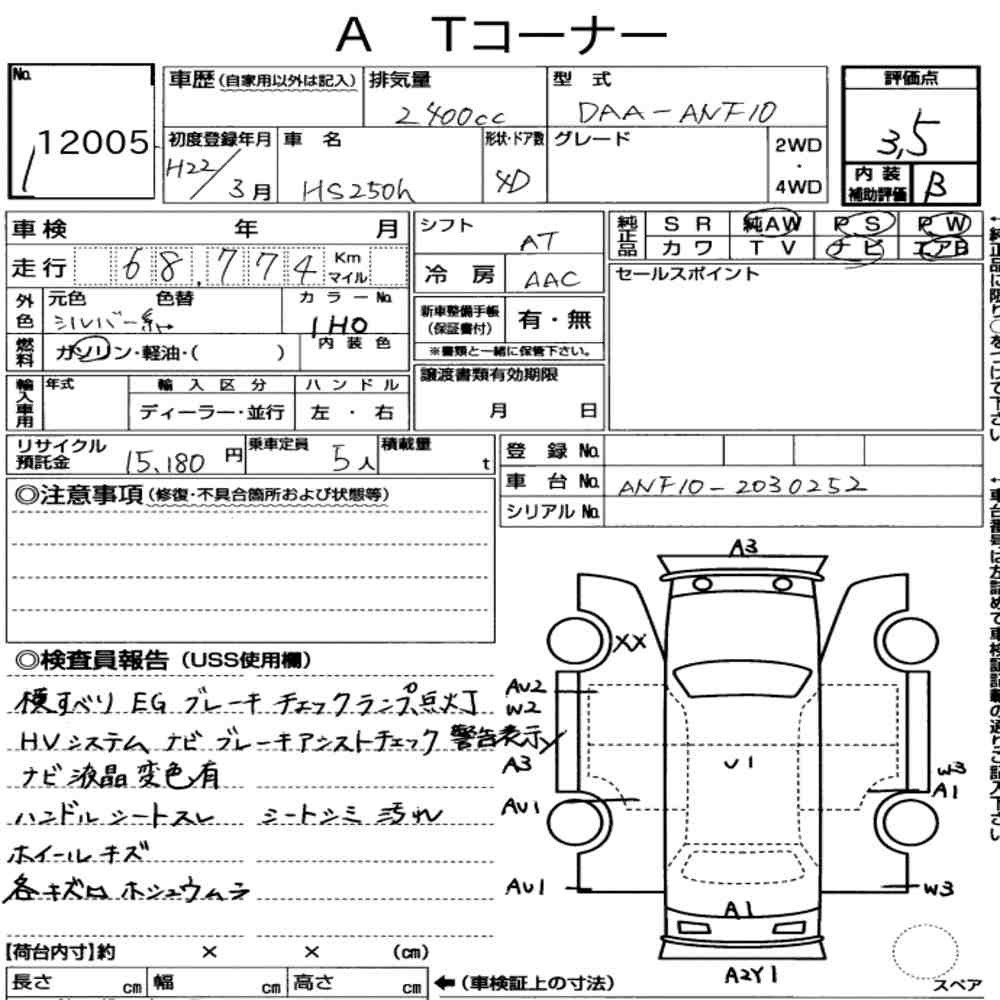 A Tコーナー
No. 12005
車歴(自家用以外は記入) 排気量 2400cc 型式 DAA-ANF10 評価点 3,5
初度登録年月 H22/3月 車名 HS250h 形状・ドア数 4D グレード 2WD・4WD
内装補助評価 B
車検 年 月 シフト AT 純正品 SR 純AW PS PW
走行 68,774 Km マイル 冷房 AAC カワ TV ナビ エアB
外色 元色 シルバー系 色替 カラーNo. 1H0 新車整備手帳(保証書付) 有・無 セールスポイント
燃料 ガソリン・軽油・( ) 内装色 ※書類と一緒に保管下さい。
輸入車用 年式 輸入区分 ハンドル 譲渡書類有効期限
ディーラー・並行 左・右 月 日
リサイクル預託金 15,180円 乗車定員 5人 積載量 t 登録No.
車台No. ANF10-2030252
シリアルNo.
◎注意事項(修復・不具合箇所および状態等)
◎検査員報告(USS使用欄)
横すべり EG ブレーキ チェックランプ点火丁
HVシステム ナビ ブレーキアシストチェック 警告表示
ナビ液晶変色有
ハンドル シートスレ シートシミ 汚れ
ホイールキズ
各キズ凹 ホシュウムラ
A3
XX
AU2
W2
A3
AU1
AU1
U1
W3
A1
W3
A1
A2Y1
スペア
【荷台内寸】約 × × (cm)
長さ cm 幅 cm 高さ cm ←(車検証上の寸法)